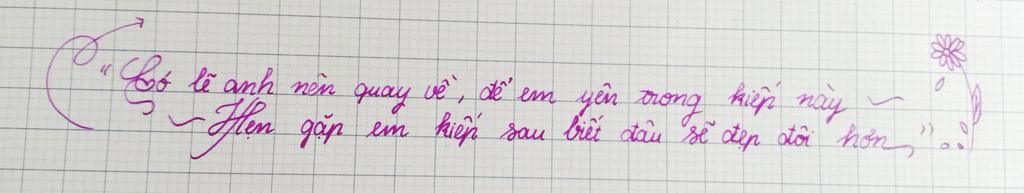 "Có lẽ anh nên quay về, để em yên trong kiếp này ~
~ Hẹn gặp em kiếp sau biết đâu sẽ đẹp đôi hơn,"